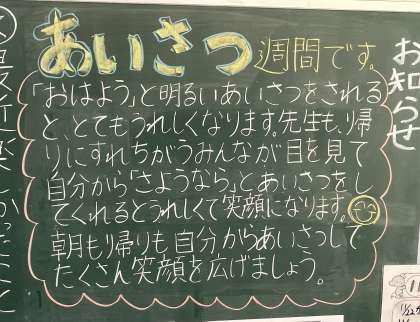 お知らせ
あいさつ週間です。
「おはよう」と明るいあいさつをされる
と、とてもうれしくなります。先生も、帰
りにすれちがうみんなが目を見て
自分から「さようなら」とあいさつをし
てくれるとうれしくて笑顔になります。
朝も帰りも自分からあいさつして
たくさん笑顔を広げましょう。
最近楽しかったこと